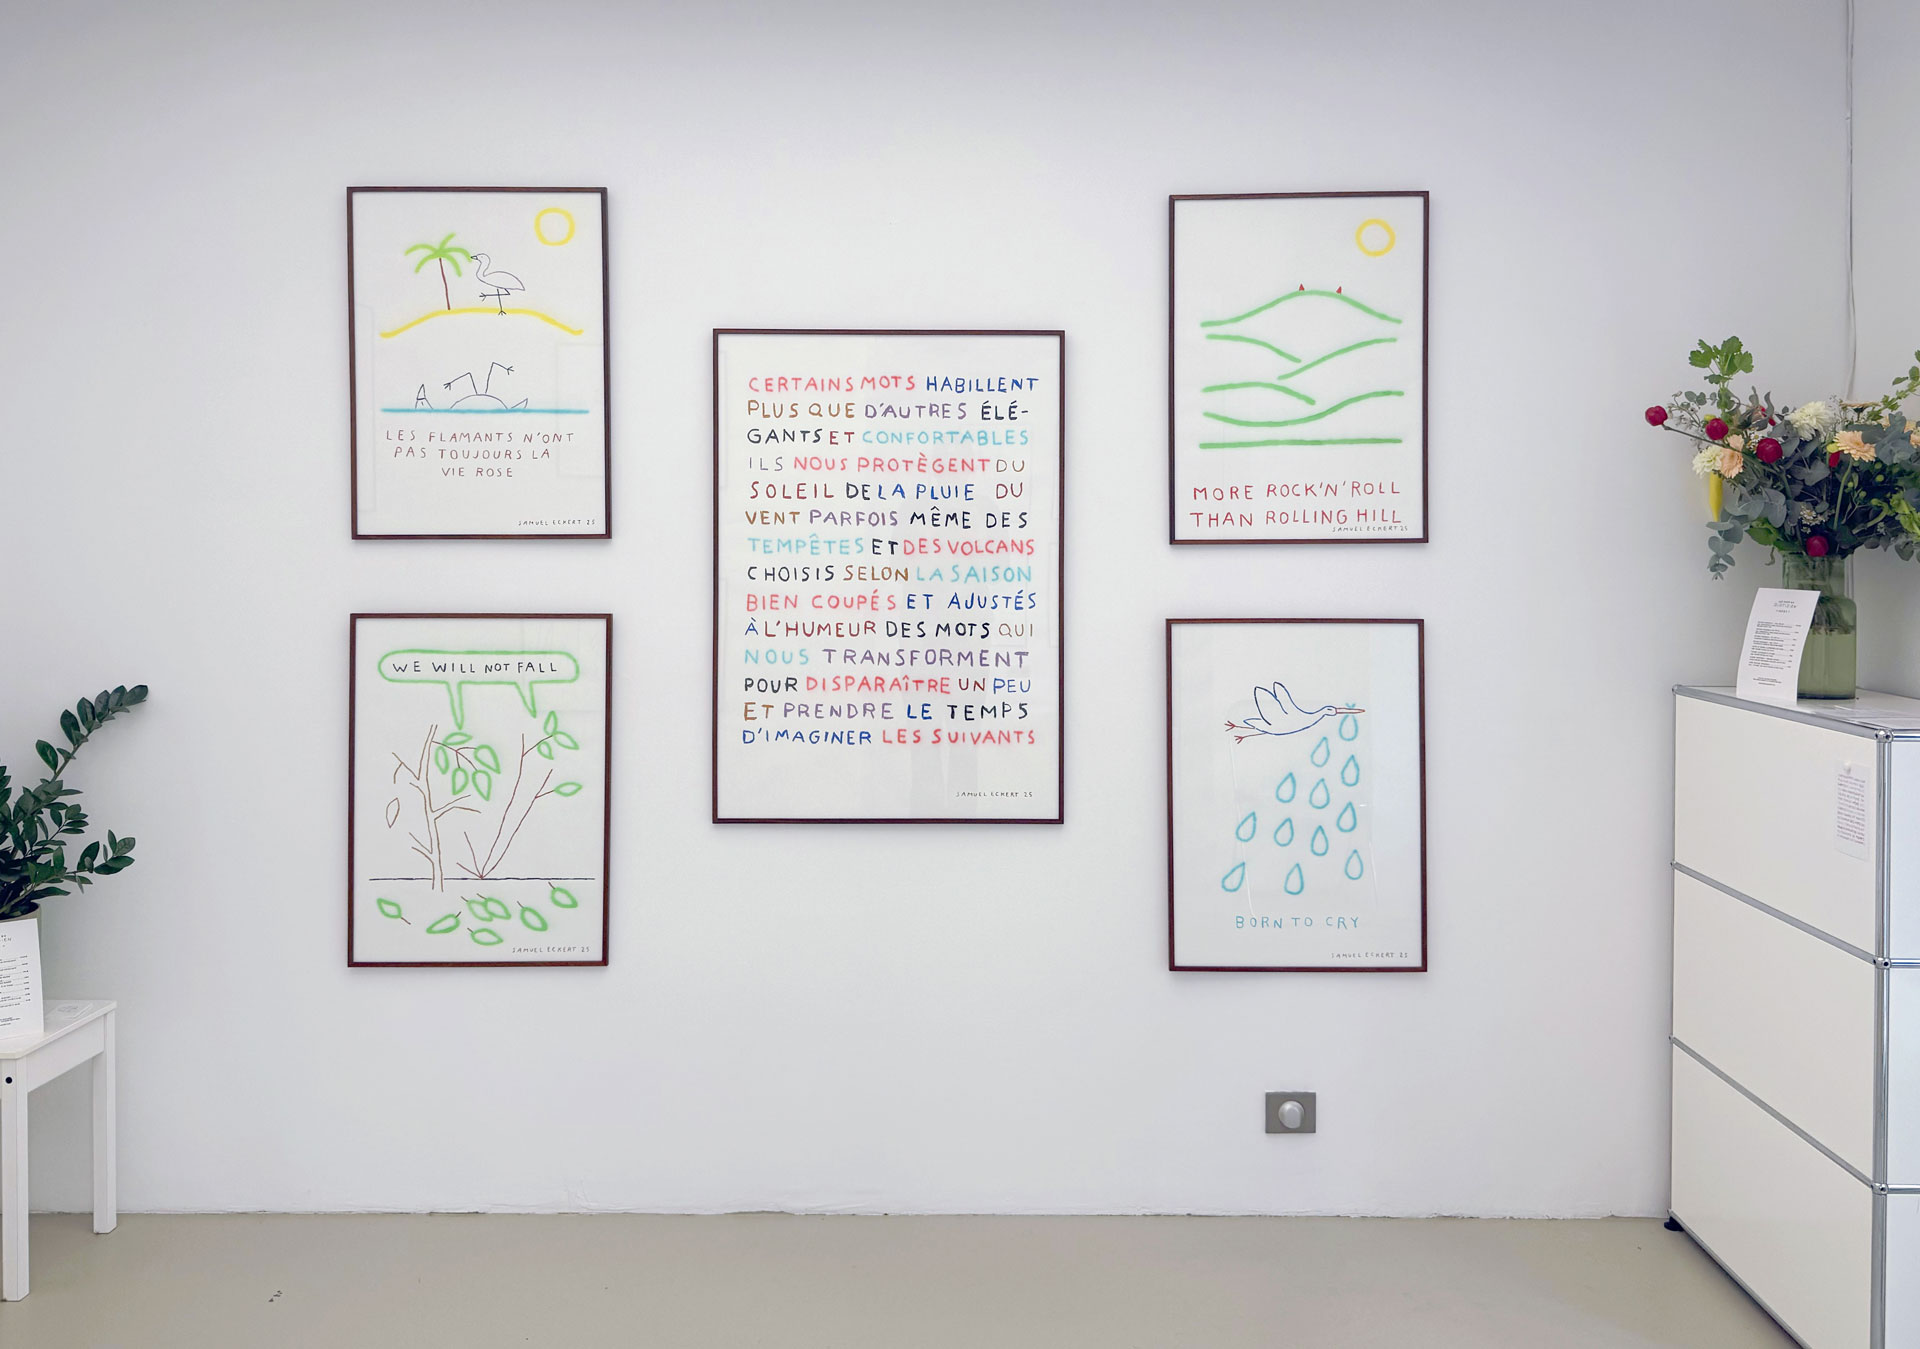 LES FLAMANTS N'ONT
PAS TOUJOURS LA
VIE ROSE
SAMUEL ECKERT 25
WE WILL NOT FALL
SAMUEL ECKERT 25
CERTAINS MOTS HABILLENT
PLUS QUE D'AUTRES ÉLÉ-
GANTS ET CONFORTABLES
ILS NOUS PROTÈGENT DU
SOLEIL DE LA PLUIE DU
VENT PARFOIS MÊME DES
TEMPÊTES ET DES VOLCANS
CHOISIS SELON LA SAISON
BIEN COUPÉS ET AJUSTÉS
À L'HUMEUR DES MOTS QUI
NOUS TRANSFORMENT
POUR DISPARAÎTRE UN PEU
ET PRENDRE LE TEMPS
D'IMAGINER LES SUIVANTS
SAMUEL ECKERT 25
MORE ROCK'N'ROLL
THAN ROLLING HILL
SAMUEL ECKERT 25
BORN TO CRY
SAMUEL ECKERT 25